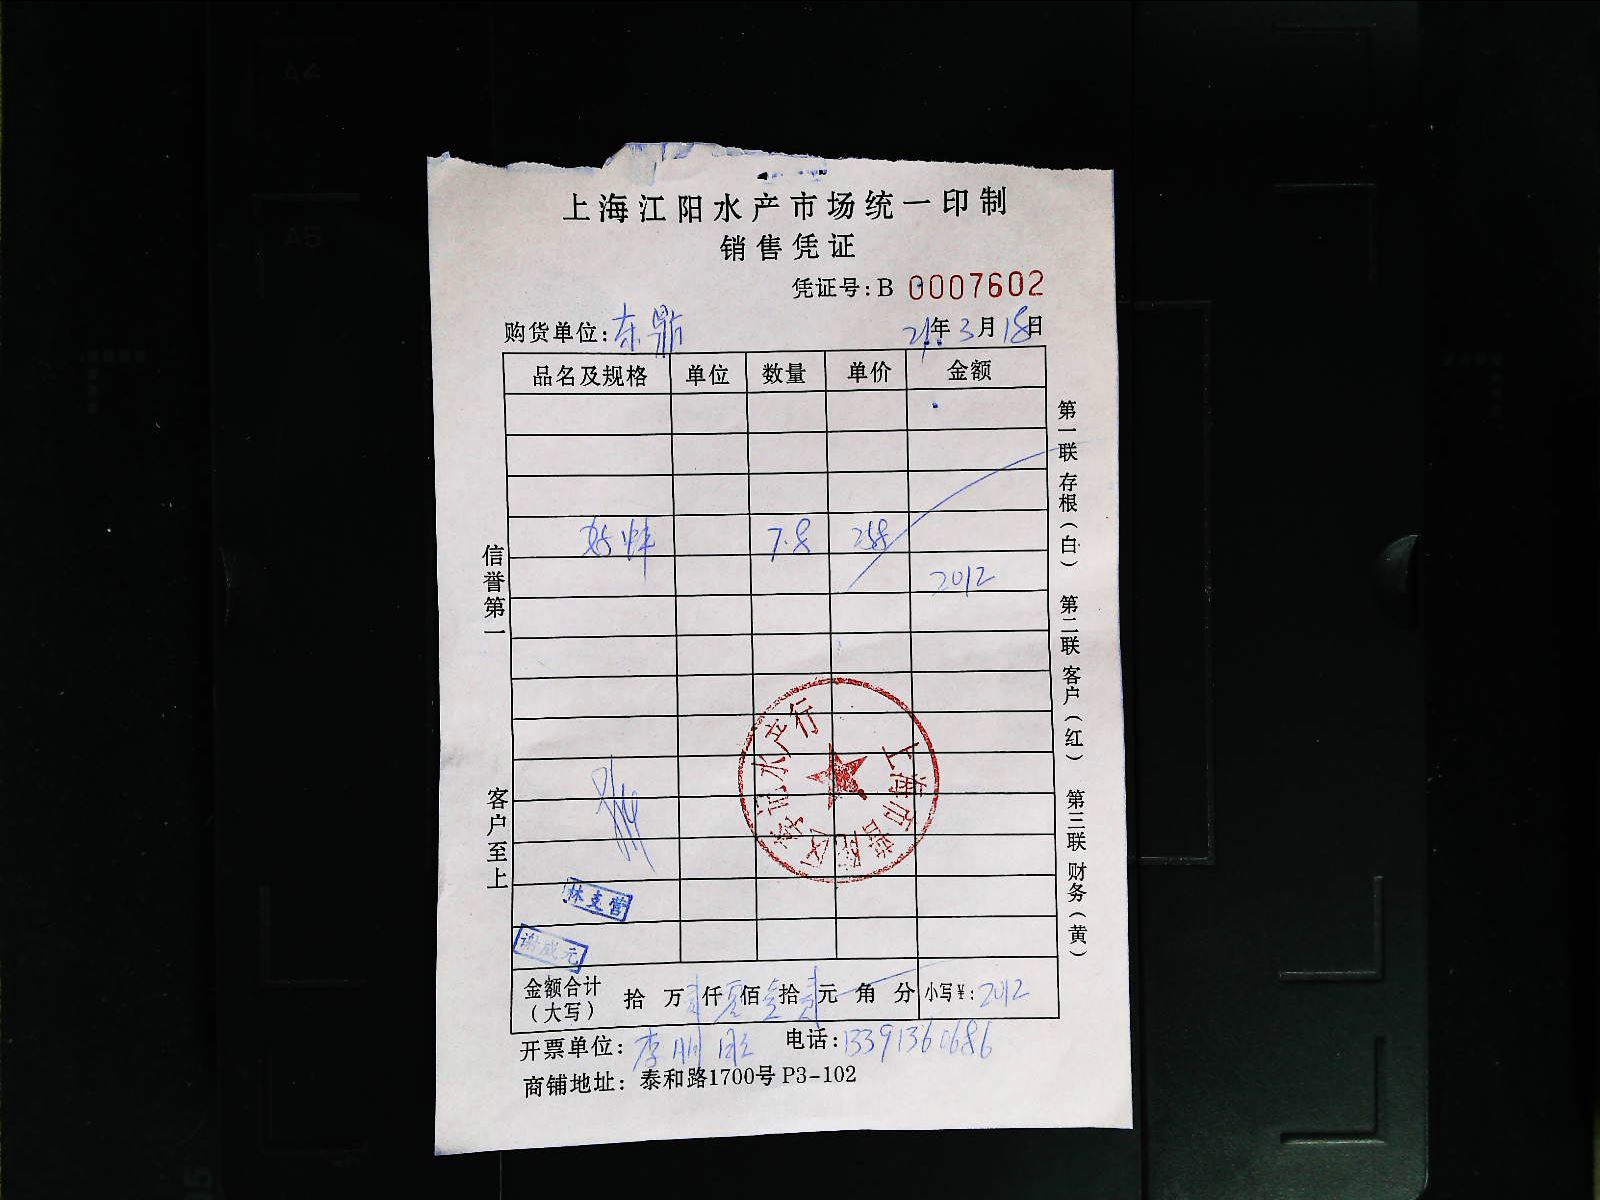 上海江阳水产市场统一印制
销售凭证
凭证号:B 0007602
购货单位:东鼎 21年3月18日
品名及规格 单位 数量 单价 金额
7.8 258
2012
信誉第一
客户至上
第一联 存根(白) 第二联 客户(红) 第三联 财务(黄)
上海市普陀区 水产行
林支营
谢成元
金额合计(大写) 拾 万 贰仟 零佰 壹拾 贰元 角 分 小写¥:2012
开票单位:李 电话:13391360686
商铺地址:泰和路1700号 P3-102